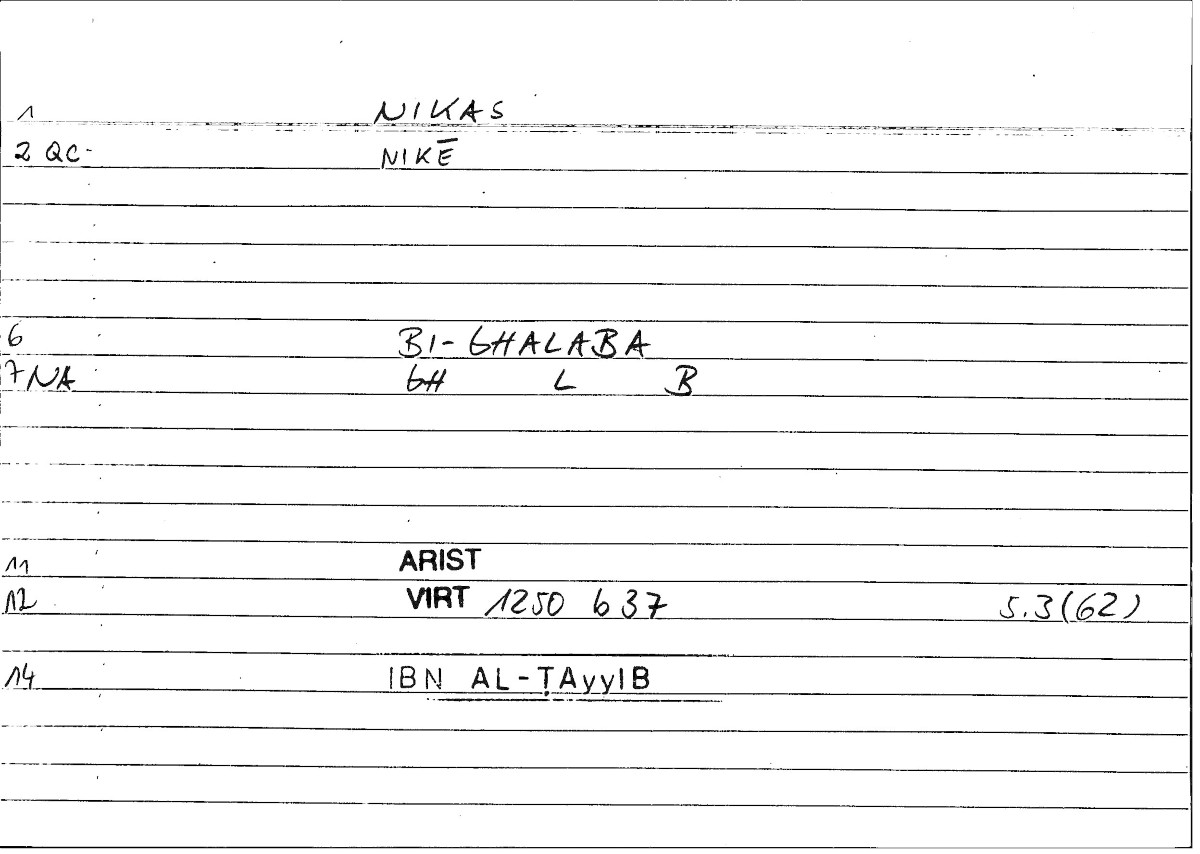 1 NIKAS
2 QC- NIKĒ
6 BI-GHALABA
7 NA GH L B
11 ARIST
12 VIRT 1250 b 37 5.3(62)
14 IBN AL-ṬAyyIB